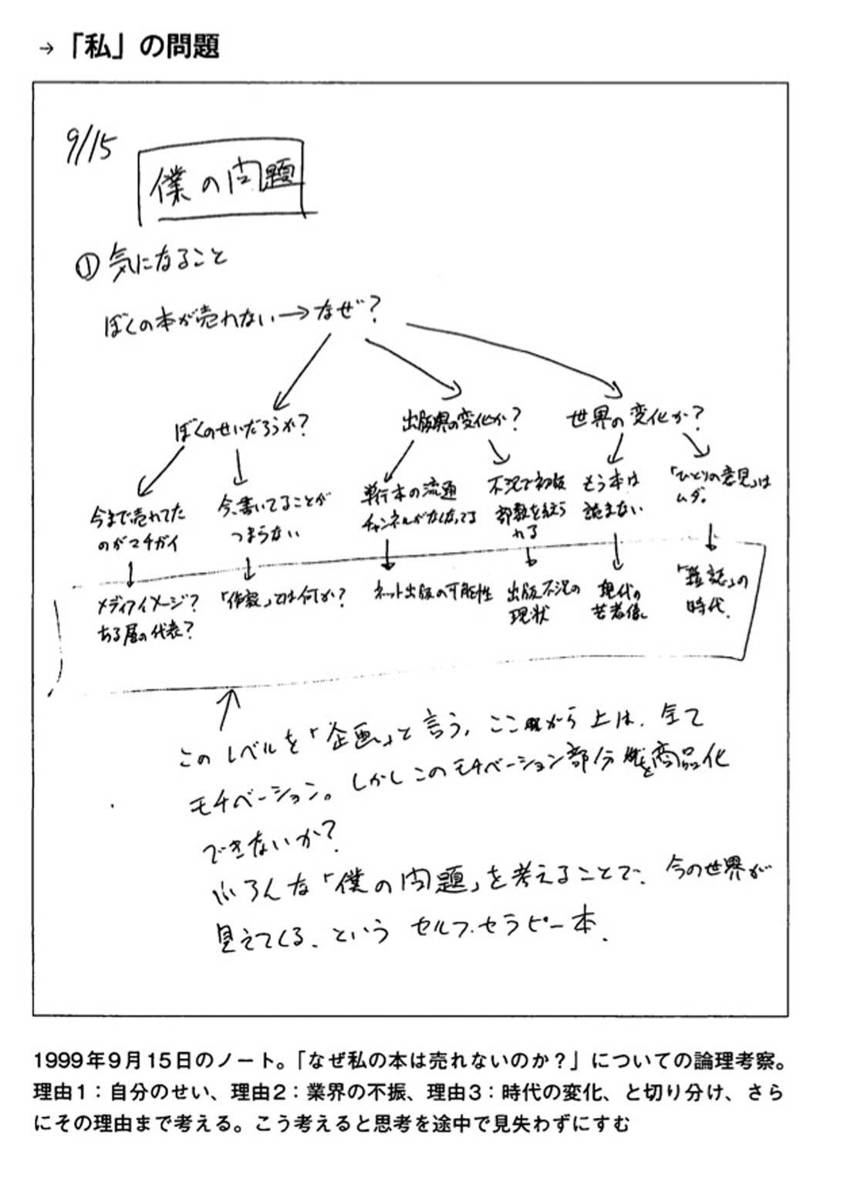 →「私」の問題
9/15
僕の問題
① 気になること
ぼくの本が売れない→なぜ?
ぼくのせいだろうか?
出版界の変化か?
世界の変化か?
今まで売れてた
のがマチガイ
今、書いてることが
つまらない
単行本の流通
チャンネルがなくなってる
不況で初版
部数を絞ら
れる
もう本は
読まない
「ひとりの意見」は
ムダ。
メディアイメージ?
ある層の代表?
「作家」とは何か?
ネット出版の可能性
出版不況の
現状
現代の
若者像
「雑誌」の
時代.
このレベルを「企画」と言う。ここから上は、全て
モチベーション。しかしこのモチベーション部分を商品化
できないか?
いろんな「僕の問題」を考えることで、今の世界が
見えてくる、という セルフ・セラピー本.
1999年9月15日のノート。「なぜ私の本は売れないのか?」についての論理考察。
理由1:自分のせい、理由2:業界の不振、理由3:時代の変化、と切り分け、さら
にその理由まで考える。こう考えると思考を途中で見失わずにすむ